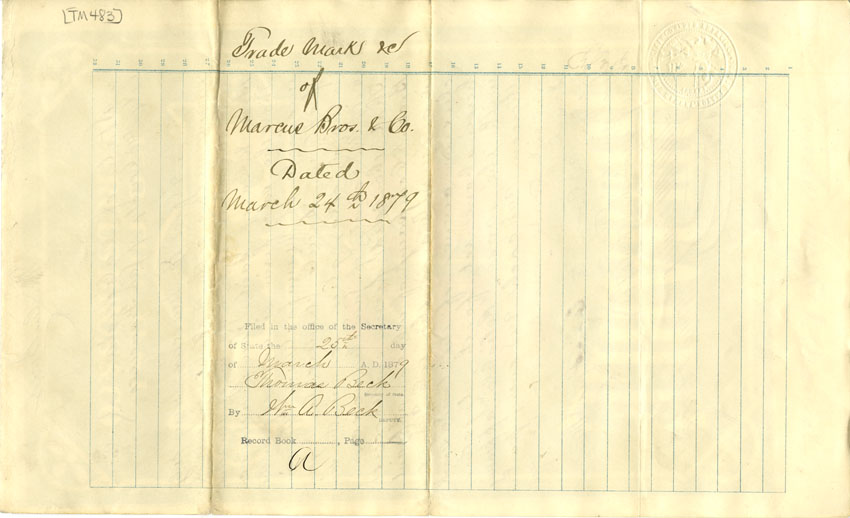 [TM483]
Trade Marks &c
of
Marcus Bros. & Co.
Dated
March 24th 1879
Filed in the office of the Secretary
of State the 25th day
of March A.D. 1879
Thomas Beck
Secretary of State.
By Wm A. Beck
DEPUTY.
Record Book ............, Page
a